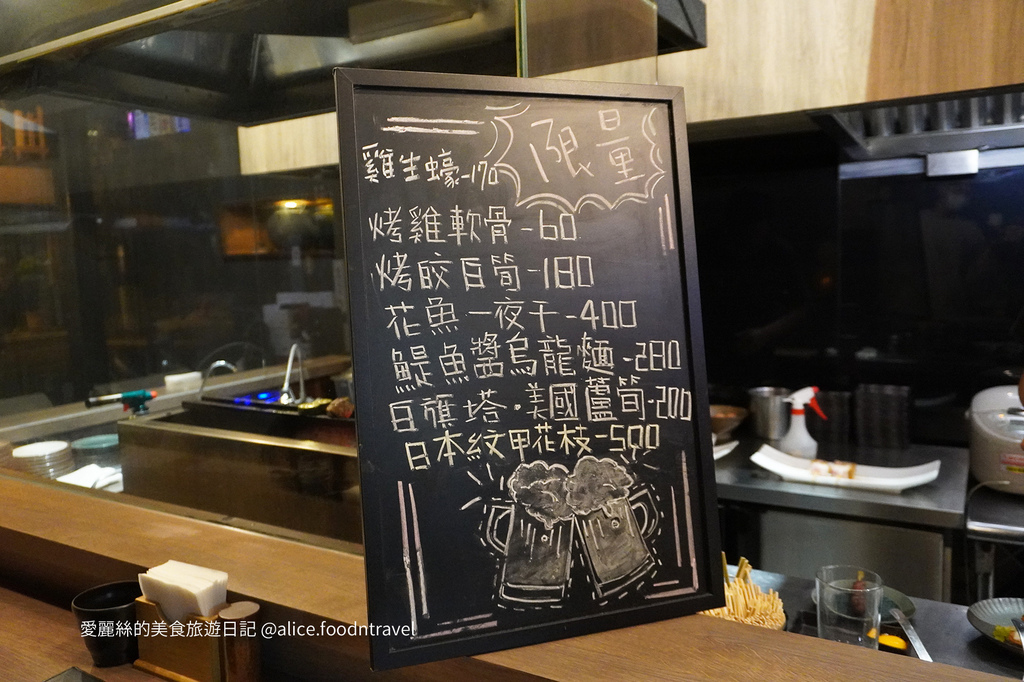 限量
雞生蠔-170
烤雞軟骨-60
烤皎白筍-180
花魚一夜干-400
鯷魚醬烏龍麵-280
白旗塔·美國蘆筍-200
日本紋甲花枝-500
愛麗絲的美食旅遊日記 @alice.foodntravel